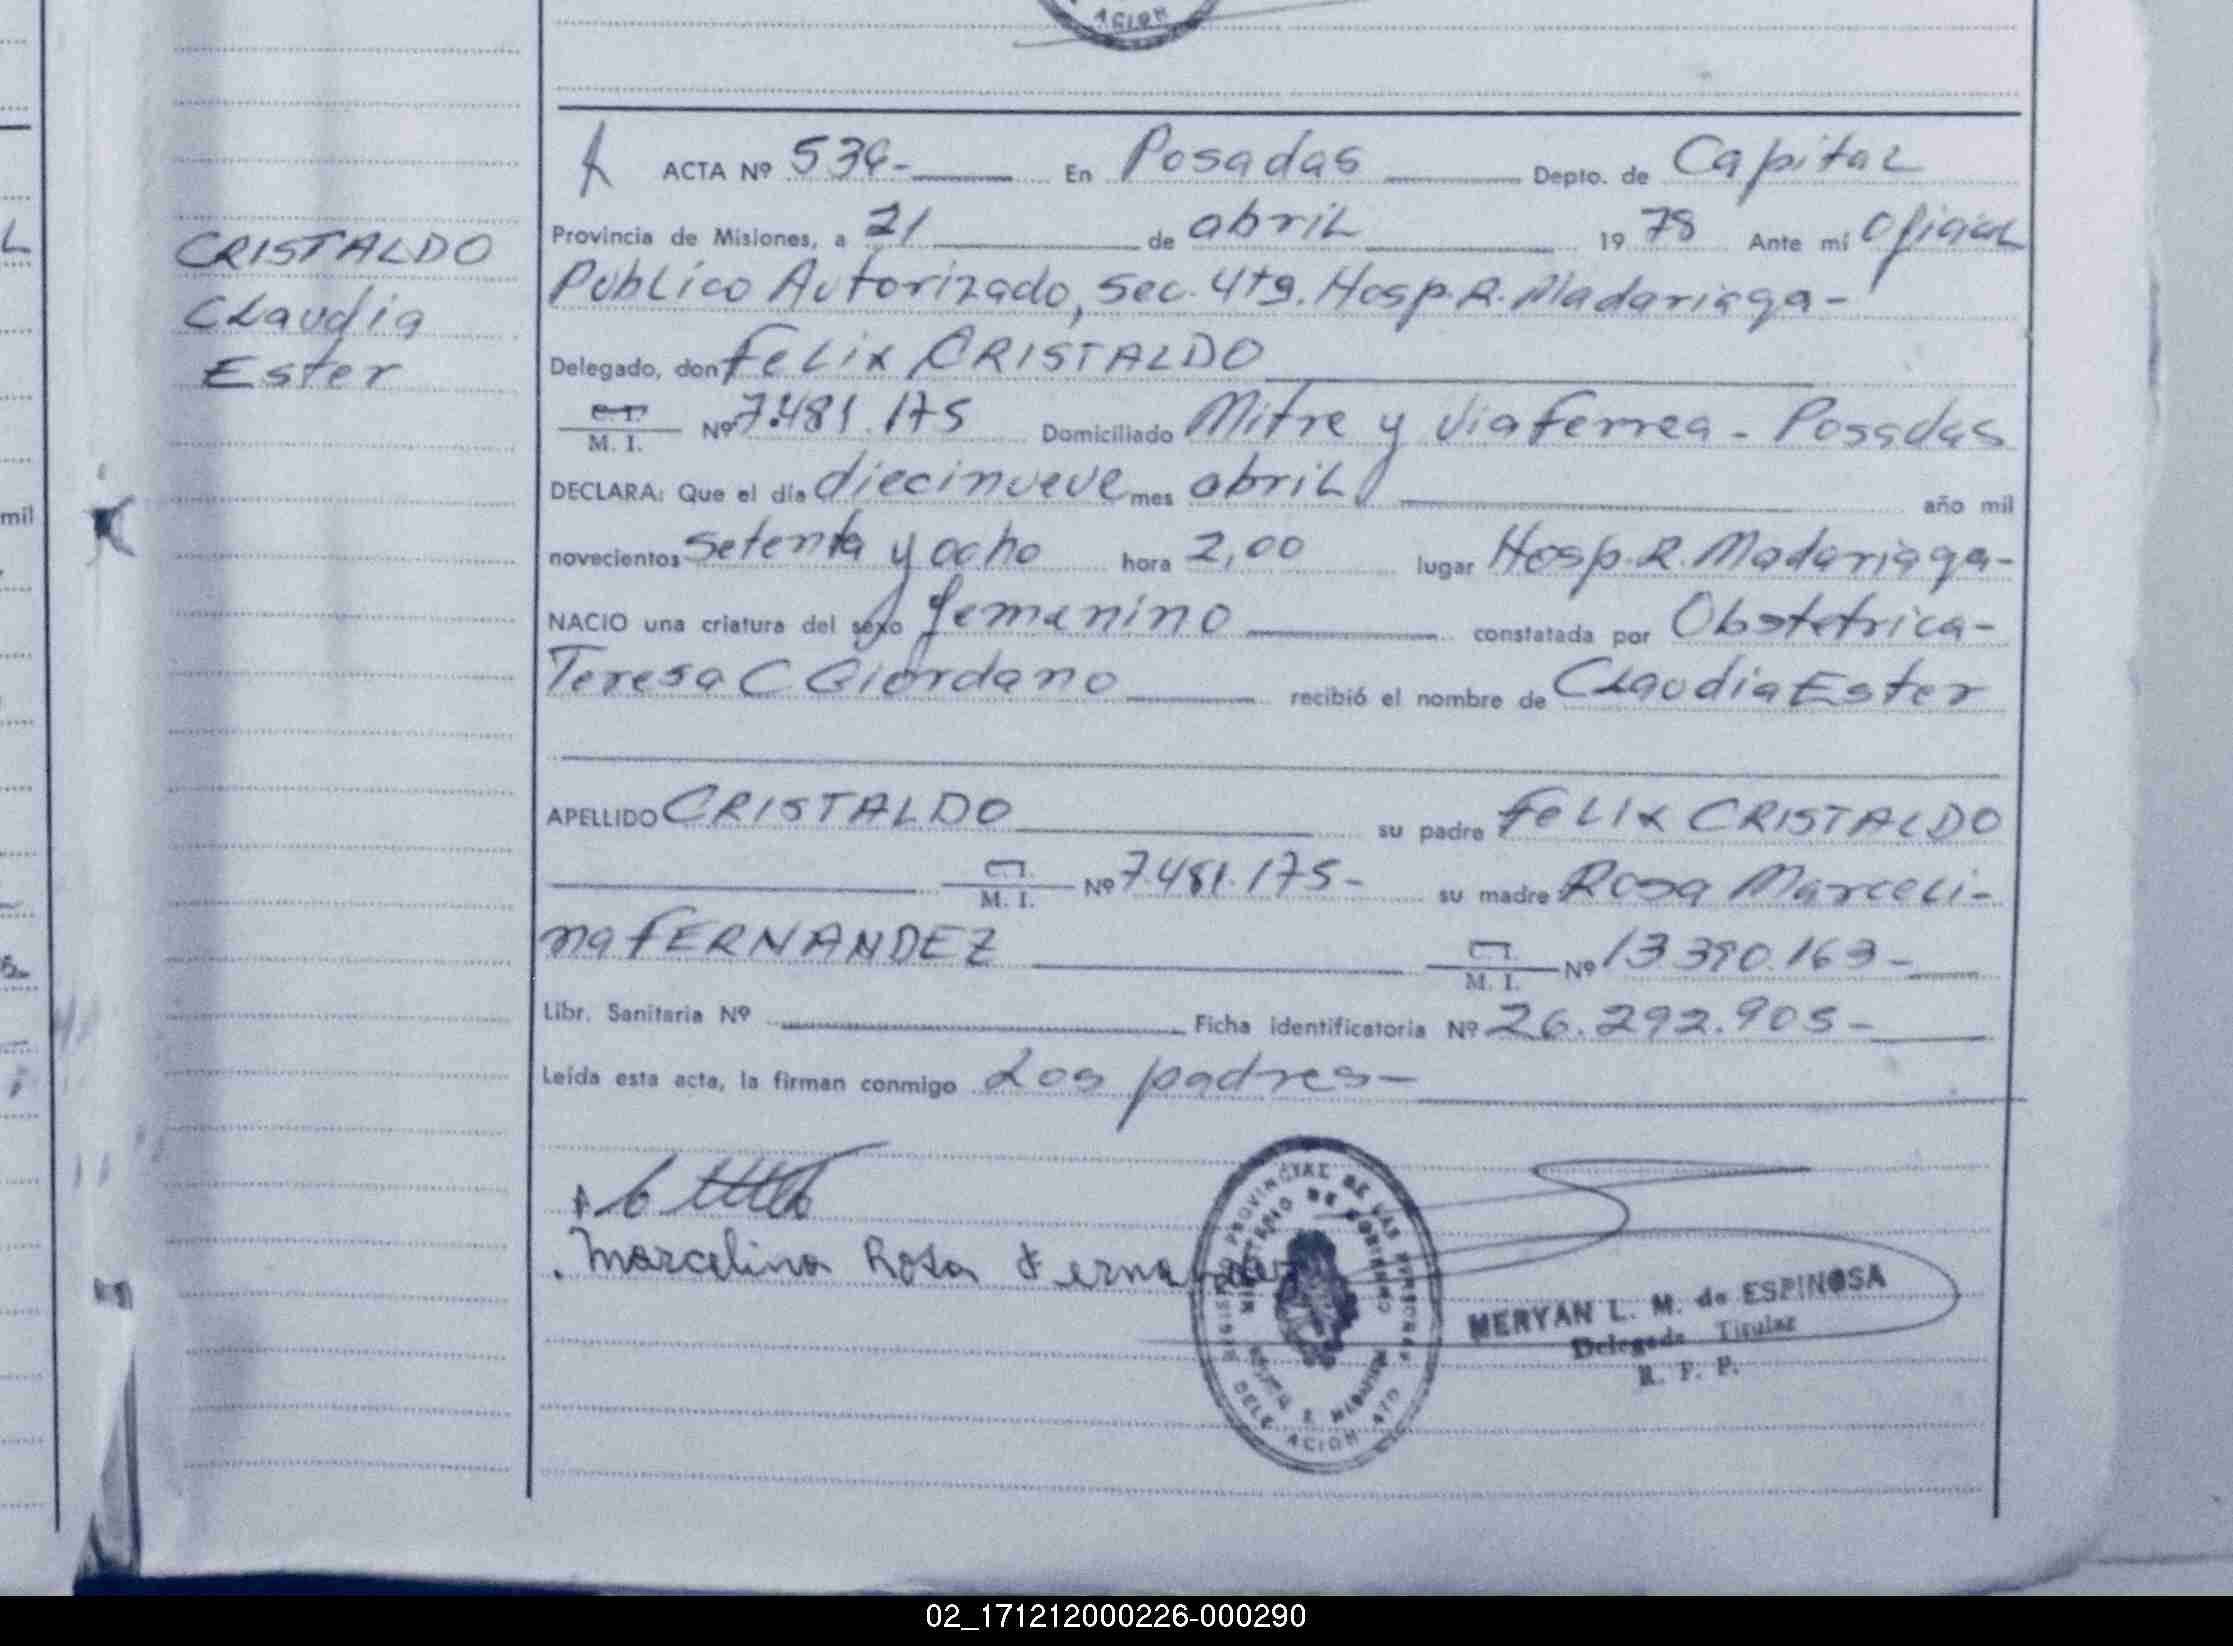 ACION
CRISTALDO
Claudia
Ester
ACTA Nº 536- En Posadas Depto. de Capital
Provincia de Misiones, a 21 de abril 1978 Ante mí Oficial
Público Autorizado, Sec. 4ta. Hosp. R. Madariaga-
Delegado, don Felix CRISTALDO
C.I. M. I. Nº 7.481.175 Domiciliado Mitre y via Ferrea - Posadas
DECLARA: Que el día diecinueve mes abril año mil
novecientos setenta y ocho hora 2,00 lugar Hosp. R. Madariaga-
NACIO una criatura del sexo femenino constatada por Obstetrica-
Teresa C Giordano recibió el nombre de Claudia Ester
APELLIDO CRISTALDO su padre Felix CRISTALDO
M. I. Nº 7.481.175- su madre Rosa Marceli-
na FERNANDEZ M. I. Nº 13.390.163-
Libr. Sanitaria Nº Ficha identificatoria Nº 26.292.905-
Leída esta acta, la firman conmigo Los padres-
Marcelina Rosa Fernandez
REGISTRO PROVINCIAL DE LAS PERSONAS
MINISTERIO DE GOBIERNO
DELEGACION
MERYAN L. M. de ESPINOSA
Delegada Titular
R. P. P.
mil
02_171212000226-000290